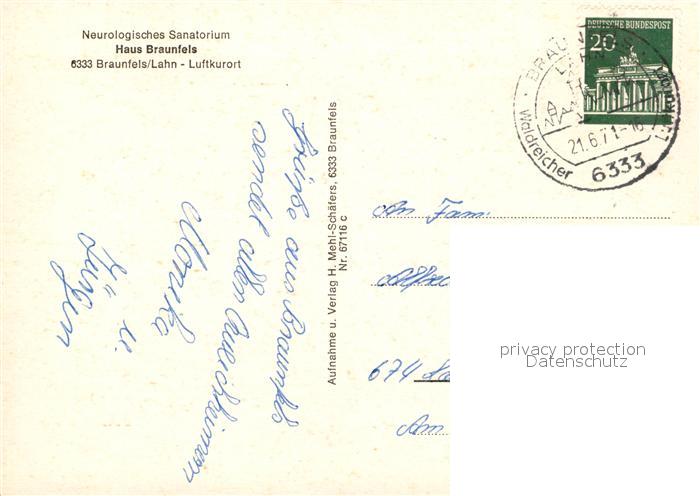 Neurologisches Sanatorium
Haus Braunfels
6333 Braunfels/Lahn - Luftkurort
DEUTSCHE BUNDESPOST
20
BRAUNFELS
LAHN
21.6.71-16
Waldreicher Luftkurort
6333
Grüße aus Braunfels
sendet allen
Monika
u.
Jürgen
Aufnahme u. Verlag H. Mehl-Schäfers, 6333 Braunfels
Nr. 67116 c
An Fam.
674
Am
privacy protection
Datenschutz